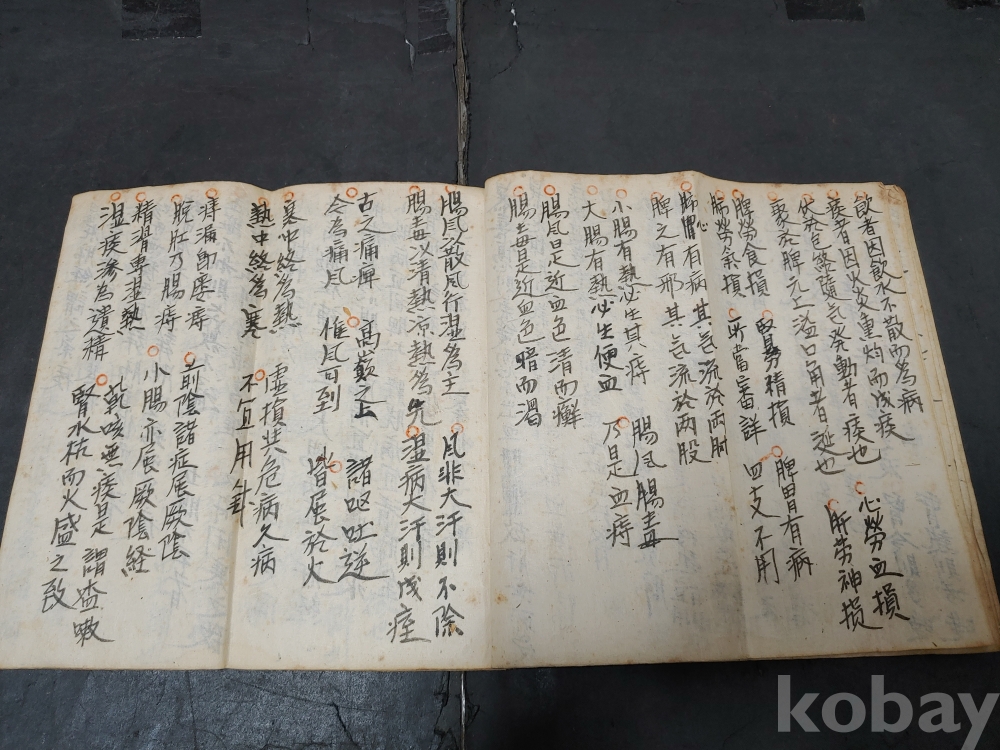 飮者因飮水不散而為病
痰者因火炎重灼而成痰
伏於包絡隨氣發動者痰也
衆於脾元上溢口角者涎也
心勞血損
肝勞神損
脾勞食損
腎勞精損
肺勞氣損
所當審詳
脾胃有病
四支不用
肺心有病其氣流於兩肘
脾之有邪其氣流於兩股
小腸有熱必生其痔
大腸有熱必生便血
腸風腸毒
乃是血痔
腸風是近血色清而鮮
腸毒是近血色暗而濁
腸風散風行湿為主
腸毒以清熱凉熱為先
風非大汗則不除
湿病大汗則成痙
古之痛痺
今為痛風
高巔之上
惟風可到
諸嘔吐逆
皆屬於火
暴中終為熱
熱中終為寒
虛損共危病久病
不宜用針
痔漏即屡痔
脫肛乃腸痔
前陰諸症屬厥陰
小腸亦屬厥陰経
精滑專湿熱
湿痰滲為潰精
乳咳無痰是謂盗嗽
腎水枯而火盛之致
kobay